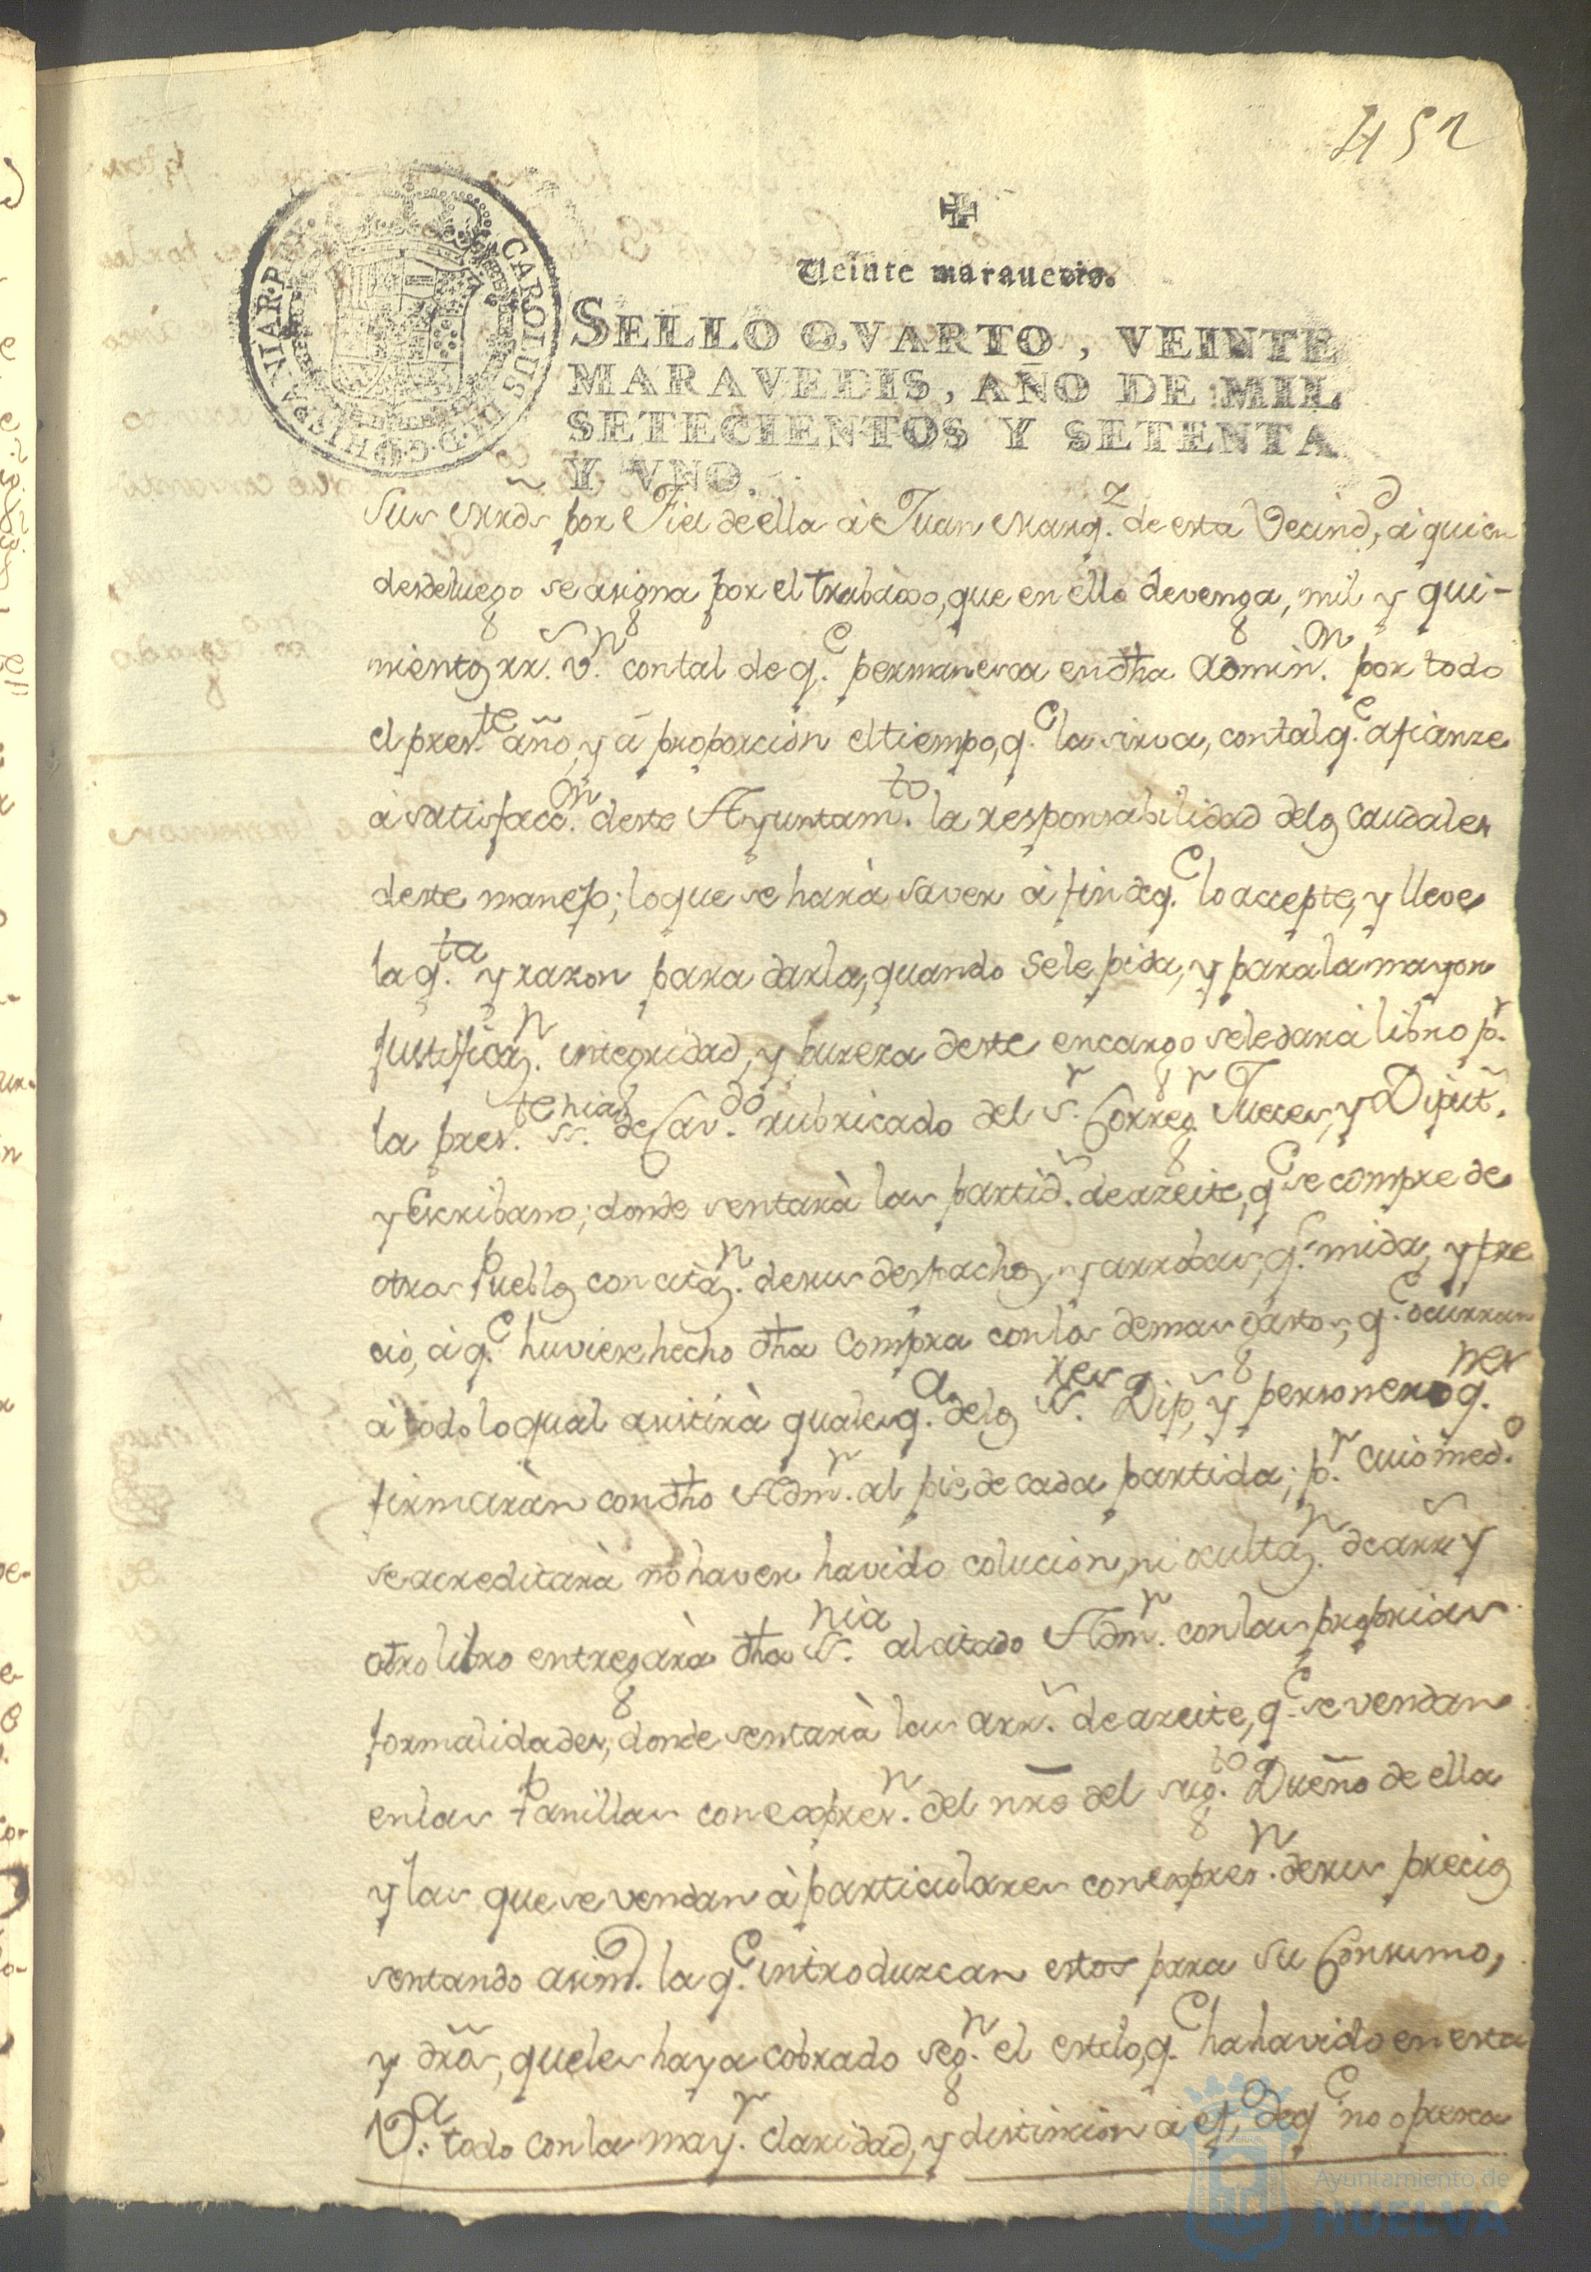 452
Veinte maravedis.
SELLO QVARTO, VEINTE
MARAVEDIS, AÑO DE MIL
SETECIENTOS Y SETENTA
Y VNO.
CAROLUS III D.G. HISPANIAR. REX
sus mrds por Fiel de ella à Juan Marqz. de esta Vecindd, à quien
desdeluego se asigna por el trabaxo, que en ello devenga, mil y qui-
nientos rrs. vn. con tal de qe. permanesca en dha Adminon. por todo
el preste. año, y à proporcion el tiempo, qe. la sirva, con tal qe. afianze
à satisfacon. deste Ayuntamto. la responsabilidad delos caudales
deste manejo; loque se harà saver à fin deqe. lo accepte, y lleve
la qta. y razon para darla, quando se le pida, y para la mayor
justificazn. integridad, y pureza deste encargo sele darà libro pr.
la preste. ssnia. de Cavdo. rubricado del sr. Corregr. Jueces, y Diput.
y Escribano; donde sentarà las partids. de azeite, qe se compre de
otros Pueblos con citazn. de sus despachos, y arrobas, qe. mida, y pre
cio, à qe. huviere hecho dha compra con los demas gastos, qe. ocurran
à todo lo qual asistirà qualesqa. delos ssres. Dips, y personero qnes.
firmaràn con dho Admr. al pie de cada partida; pr. cuio medo.
se acreditarà no haver havido colucion, ni ocultazn. de arrs y
otro libro entregarà dha ssnia. al citado Admr. con las proprias
formalidades, donde sentarà las arrs. de azeite, qe. se vendan
en las Panillas con expresn. del nro del sugto. Dueño de ella
y las que se vendan à particulares con expresn. de sus precios
sentando asimo. la qe. introduzcan estos para su Consumo,
y dros, que les haya cobrado segn. el estilo, qe. ha havido en esta
Va. todo con la mayr. claridad, y distincion à efo. de qe no ofresca
Ayuntamiento de
HUELVA